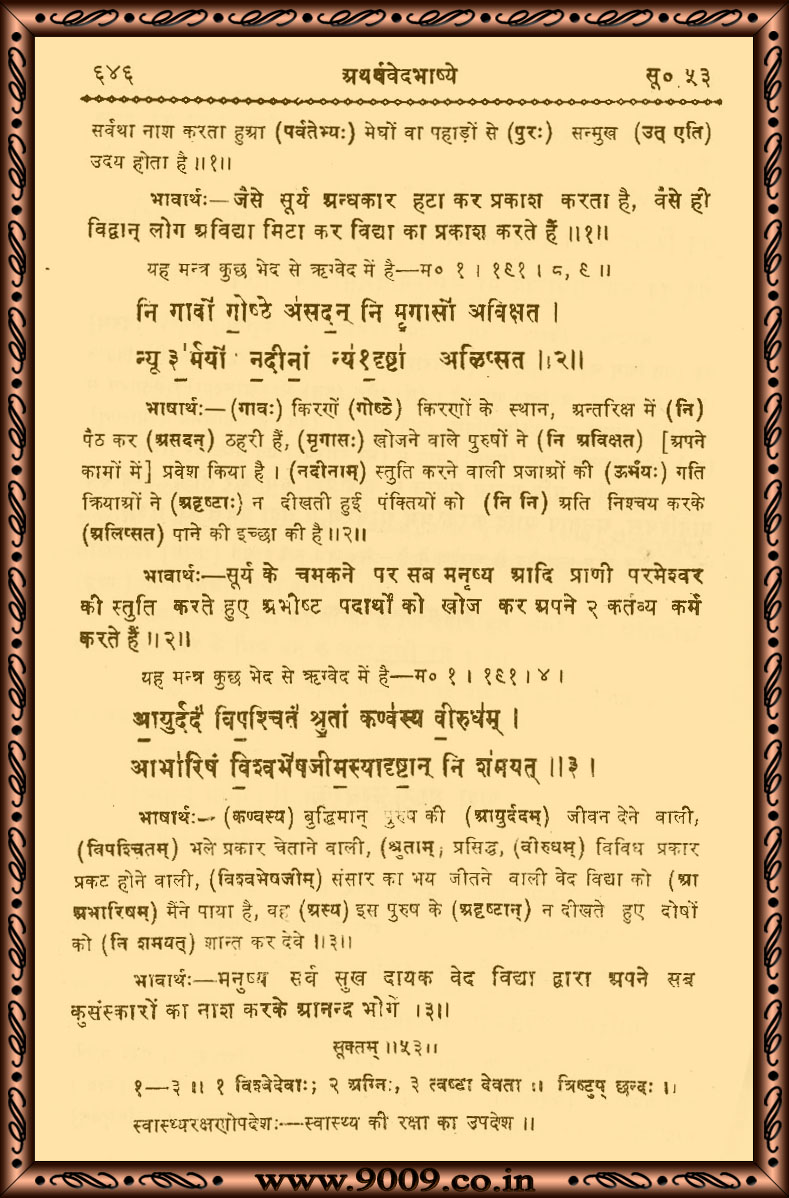 ६४६ अथर्ववेदभाष्ये सू० ५३
सर्वथा नाश करता हुआ (पर्वतेभ्यः) मेघों वा पहाड़ों से (पुरः) सन्मुख (उत् एति)
उदय होता है ॥१॥
भावार्थः—जैसे सूर्य अन्धकार हटा कर प्रकाश करता है, वैसे ही
विद्वान् लोग अविद्या मिटा कर विद्या का प्रकाश करते हैं ॥१॥
यह मन्त्र कुछ भेद से ऋग्वेद में है—म० १ । १९१ । ८, ९ ॥
नि गावो॑ गो॒ष्ठे अ॑सद॒न् नि मृ॒गासो॑ अविक्षत ।
न्यू ३॒॑र्मयो॑ न॒दीनां॒ न्य॑१॒दृष्टा॑ अलिप्सत ॥२॥
भाषार्थः—(गावः) किरणें (गोष्ठे) किरणों के स्थान, अन्तरिक्ष में (नि)
पैठ कर (असदन्) ठहरी हैं, (मृगासः) खोजने वाले पुरुषों ने (नि अविक्षत) [अपने
कामों में] प्रवेश किया है । (नदीनाम्) स्तुति करने वाली प्रजाओं की (ऊर्मयः) गति
क्रियाओं ने (अदृष्टाः) न दीखती हुई पंक्तियों को (नि नि) अति निश्चय करके
(अलिप्सत) पाने की इच्छा की है ॥२॥
भावार्थः—सूर्य के चमकने पर सब मनुष्य आदि प्राणी परमेश्वर
की स्तुति करते हुए अभीष्ट पदार्थों को खोज कर अपने २ कर्तव्य कर्म
करते हैं ॥२॥
यह मन्त्र कुछ भेद से ऋग्वेद में है—म० १ । १९१ । ४ ।
आ॒यु॒र्ददं॑ विप॒श्चितं॑ श्रु॒तां कण्व॑स्य वी॒रुध॑म् ।
आभा॑रिषं वि॒श्वभे॑षजीम॒स्यादृष्टा॒न् नि श॑मयत् ॥३ ।
भाषार्थः—(कण्वस्य) बुद्धिमान् पुरुष की (आयुर्ददम्) जीवन देने वाली,
(विपश्चितम्) भले प्रकार चेताने वाली, (श्रुताम्) प्रसिद्ध, (वीरुधम्) विविध प्रकार
प्रकट होने वाली, (विश्वभेषजीम्) संसार का भय जीतने वाली वेद विद्या को (आ
अभारिषम्) मैंने पाया है, वह (अस्य) इस पुरुष के (अदृष्टान्) न दीखते हुए दोषों
को (नि शमयत्) शान्त कर देवे ॥३॥
भावार्थः—मनुष्य सर्व सुख दायक वेद विद्या द्वारा अपने सब
कुसंस्कारों का नाश करके आनन्द भोगें ।३॥
सूक्तम् ॥५३॥
१—३ ॥ १ विश्वेदेवाः; २ अग्निः, ३ त्वष्टा देवता ॥ त्रिष्टुप् छन्दः ॥
स्वास्थ्यरक्षणोपदेशः—स्वास्थ्य की रक्षा का उपदेश ॥
www.9009.co.in